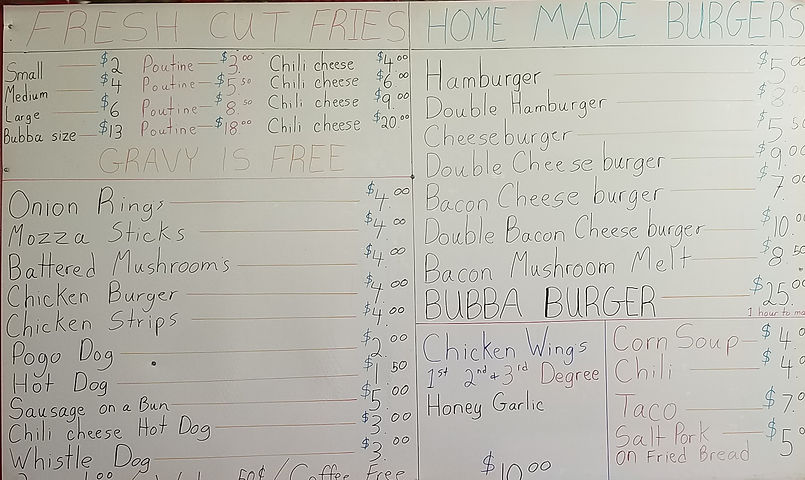 FRESH CUT FRIES
Small $2 Poutine $3.00 Chili cheese $4.00
Medium $4 Poutine $5.50 Chili cheese $6.00
Large $6 Poutine $8.50 Chili cheese $9.00
Bubba size $13 Poutine $18.00 Chili cheese $20.00
GRAVY IS FREE
Onion Rings $4.00
Mozza Sticks $4.00
Battered Mushroom's $4.00
Chicken Burger $4.00
Chicken Strips $4.00
Pogo Dog $2.00
Hot Dog $1.50
Sausage on a Bun $5.00
Chili cheese Hot Dog $3.00
Whistle Dog $3.00
50¢/Coffee Free
HOME MADE BURGERS
Hamburger $5.00
Double Hamburger $8.00
Cheeseburger $5.50
Double Cheese burger $9.00
Bacon Cheese burger $7.00
Double Bacon Cheese burger $10.00
Bacon Mushroom Melt $8.50
BUBBA BURGER $25.00
1 hour to
Chicken Wings
1st 2nd + 3rd Degree
Honey Garlic
$10.00
Corn Soup $4.0
Chili $4.
Taco $7.0
Salt Pork
on Fried Bread $5